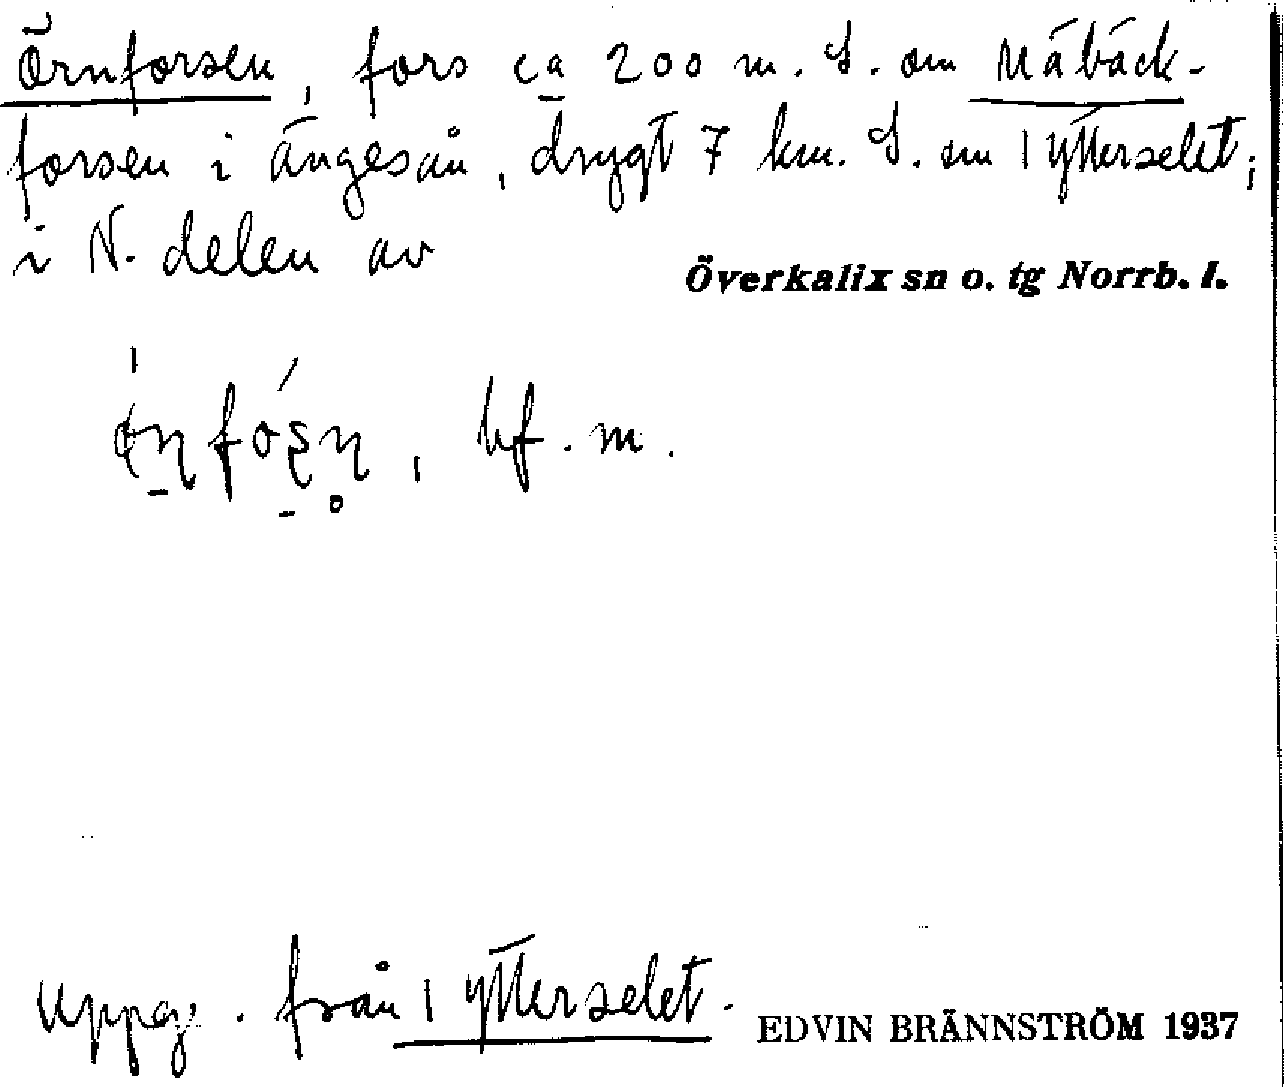 Örnforsen, fors ca 200 m. S. om Måbäck-
forsen i Ängesån, drygt 7 km. S. om 1 Ytterselet;
i N. delen av
Överkalix sn o. tg Norrb. l.
bf. m.
Uppg. från 1 Ytterselet.
EDVIN BRÄNNSTRÖM 1937